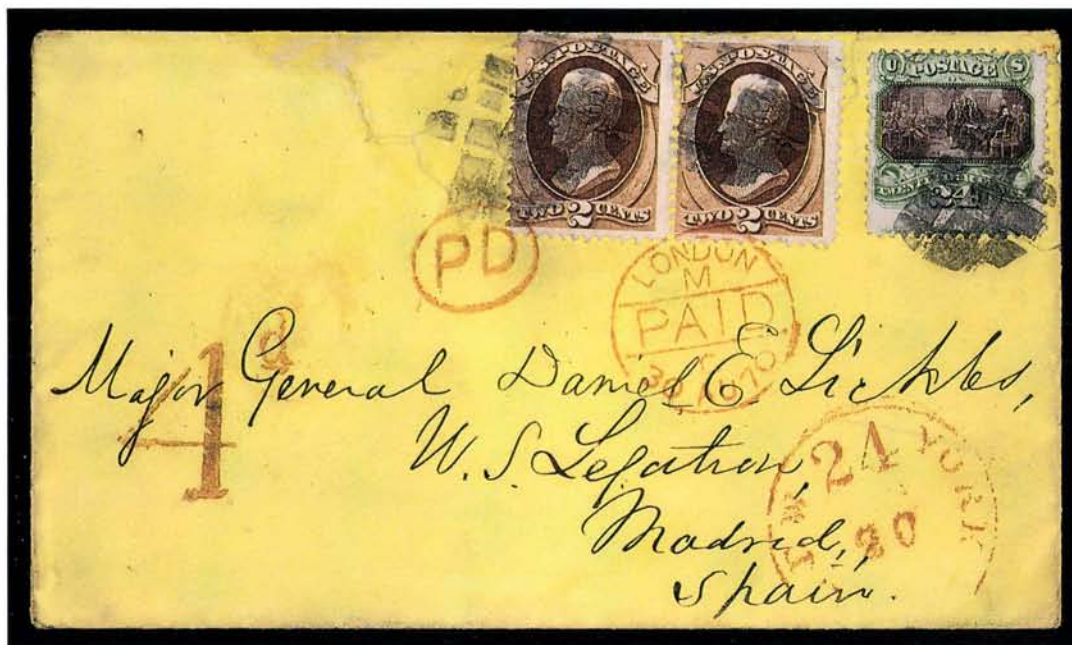 U.S. POSTAGE
TWO 2 CENTS
U.S. POSTAGE
TWO 2 CENTS
U POSTAGE S
24
PD
LONDON
M
PAID
70
4d
Major General Daniel E Sickles,
U. S. Legation,
Madrid,
Spain.
24
YORK